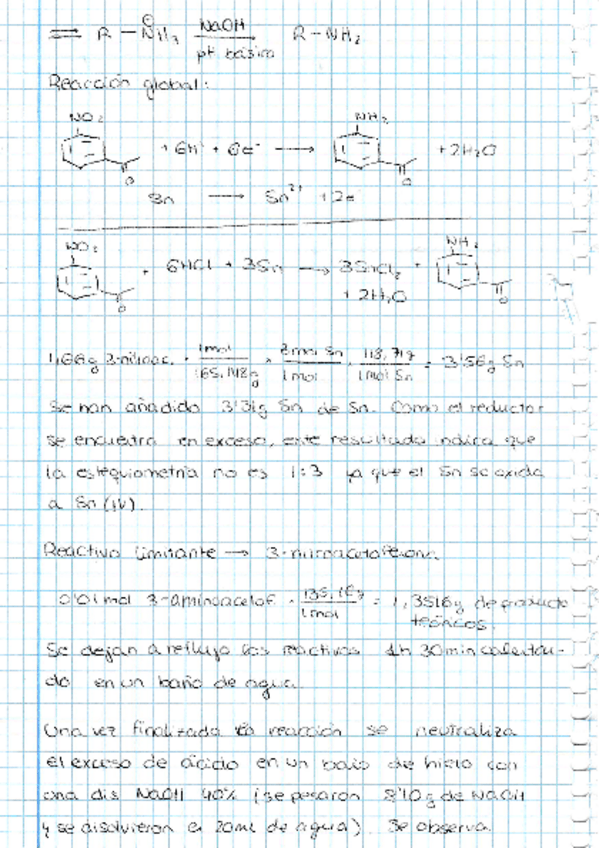 ⇒ R - N⊕H₃ NaOH R-NH₂
pH básico
Reacción global:
NO₂ NH₂
+ 6H⁺ + 6e⁻ → + 2H₂O
O O
Sn → Sn²⁺ + 2e
NO₂ NH₂
+ 6HCl + 3Sn → 3SnCl₂ +
+ 2H₂O
O O
1,66g 3-nitroac. · 1mol / 165,148g · 3mol Sn / 1mol · 118,71g / 1mol Sn = 3'56g Sn
Se han añadido 3'31g Sn de Sn. Como el reductor
se encuentra en exceso, este resultado indica que
la estequiometría no es 1:3 ya que el Sn se oxida
a Sn (IV).
Reactivo limitante → 3-nitroacetofenona
0'01mol 3-aminoacetof. · 135,16g / 1mol = 1,3516g de producto
teóricos.
Se dejan a reflujo los reactivos 1h 30min calentan-
do en un baño de agua.
Una vez finalizada la reacción se neutraliza
el exceso de ácido en un baño de hielo con
una dis NaOH 40% (se pesaron 8'10g de NaOH
y se disolvieron en 20ml de agua). Se observa